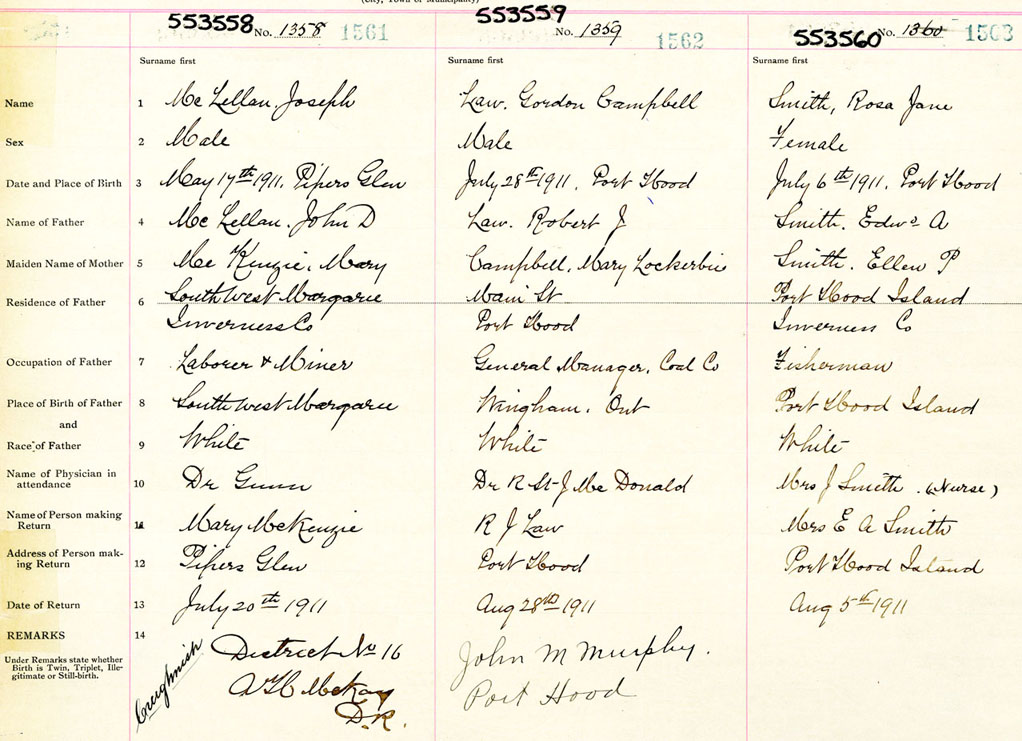 (City, Town or Municipality)
553558 No. 1358 1561 553559 No. 1359 1562 553560 No. 1360 1563
Surname first Surname first Surname first
Name 1 McLellan, Joseph Law. Gordon Campbell Smith, Rosa Jane
Sex 2 Male Male Female
Date and Place of Birth 3 May 17th 1911, Pipers Glen July 28th 1911, Port Hood July 6th 1911, Port Hood
Name of Father 4 McLellan, John D Law. Robert J Smith. Edwd A
Maiden Name of Mother 5 McKenzie, Mary Campbell, Mary Lockerbie Smith. Ellen P
Residence of Father 6 South West Margarie Main St Port Hood Island
Inverness Co Port Hood Inverness Co
Occupation of Father 7 Laborer & Miner General Manager, Coal Co Fisherman
Place of Birth of Father 8 South West Margarie Wingham. Ont Port Hood Island
and
Race of Father 9 White White White
Name of Physician in attendance 10 Dr Gunn Dr R St J McDonald Mrs J Smith. (Nurse)
Name of Person making Return 11 Mary McKenzie R J Law Mrs E A Smith
Address of Person making Return 12 Pipers Glen Port Hood Port Hood Island
Date of Return 13 July 20th 1911 Aug 28th 1911 Aug 5th 1911
REMARKS 14
Under Remarks state whether Birth is Twin, Triplet, Illegitimate or Still-birth.
Creighnish District No 16 John M Murphy.
A H McKay Port Hood
D.R.